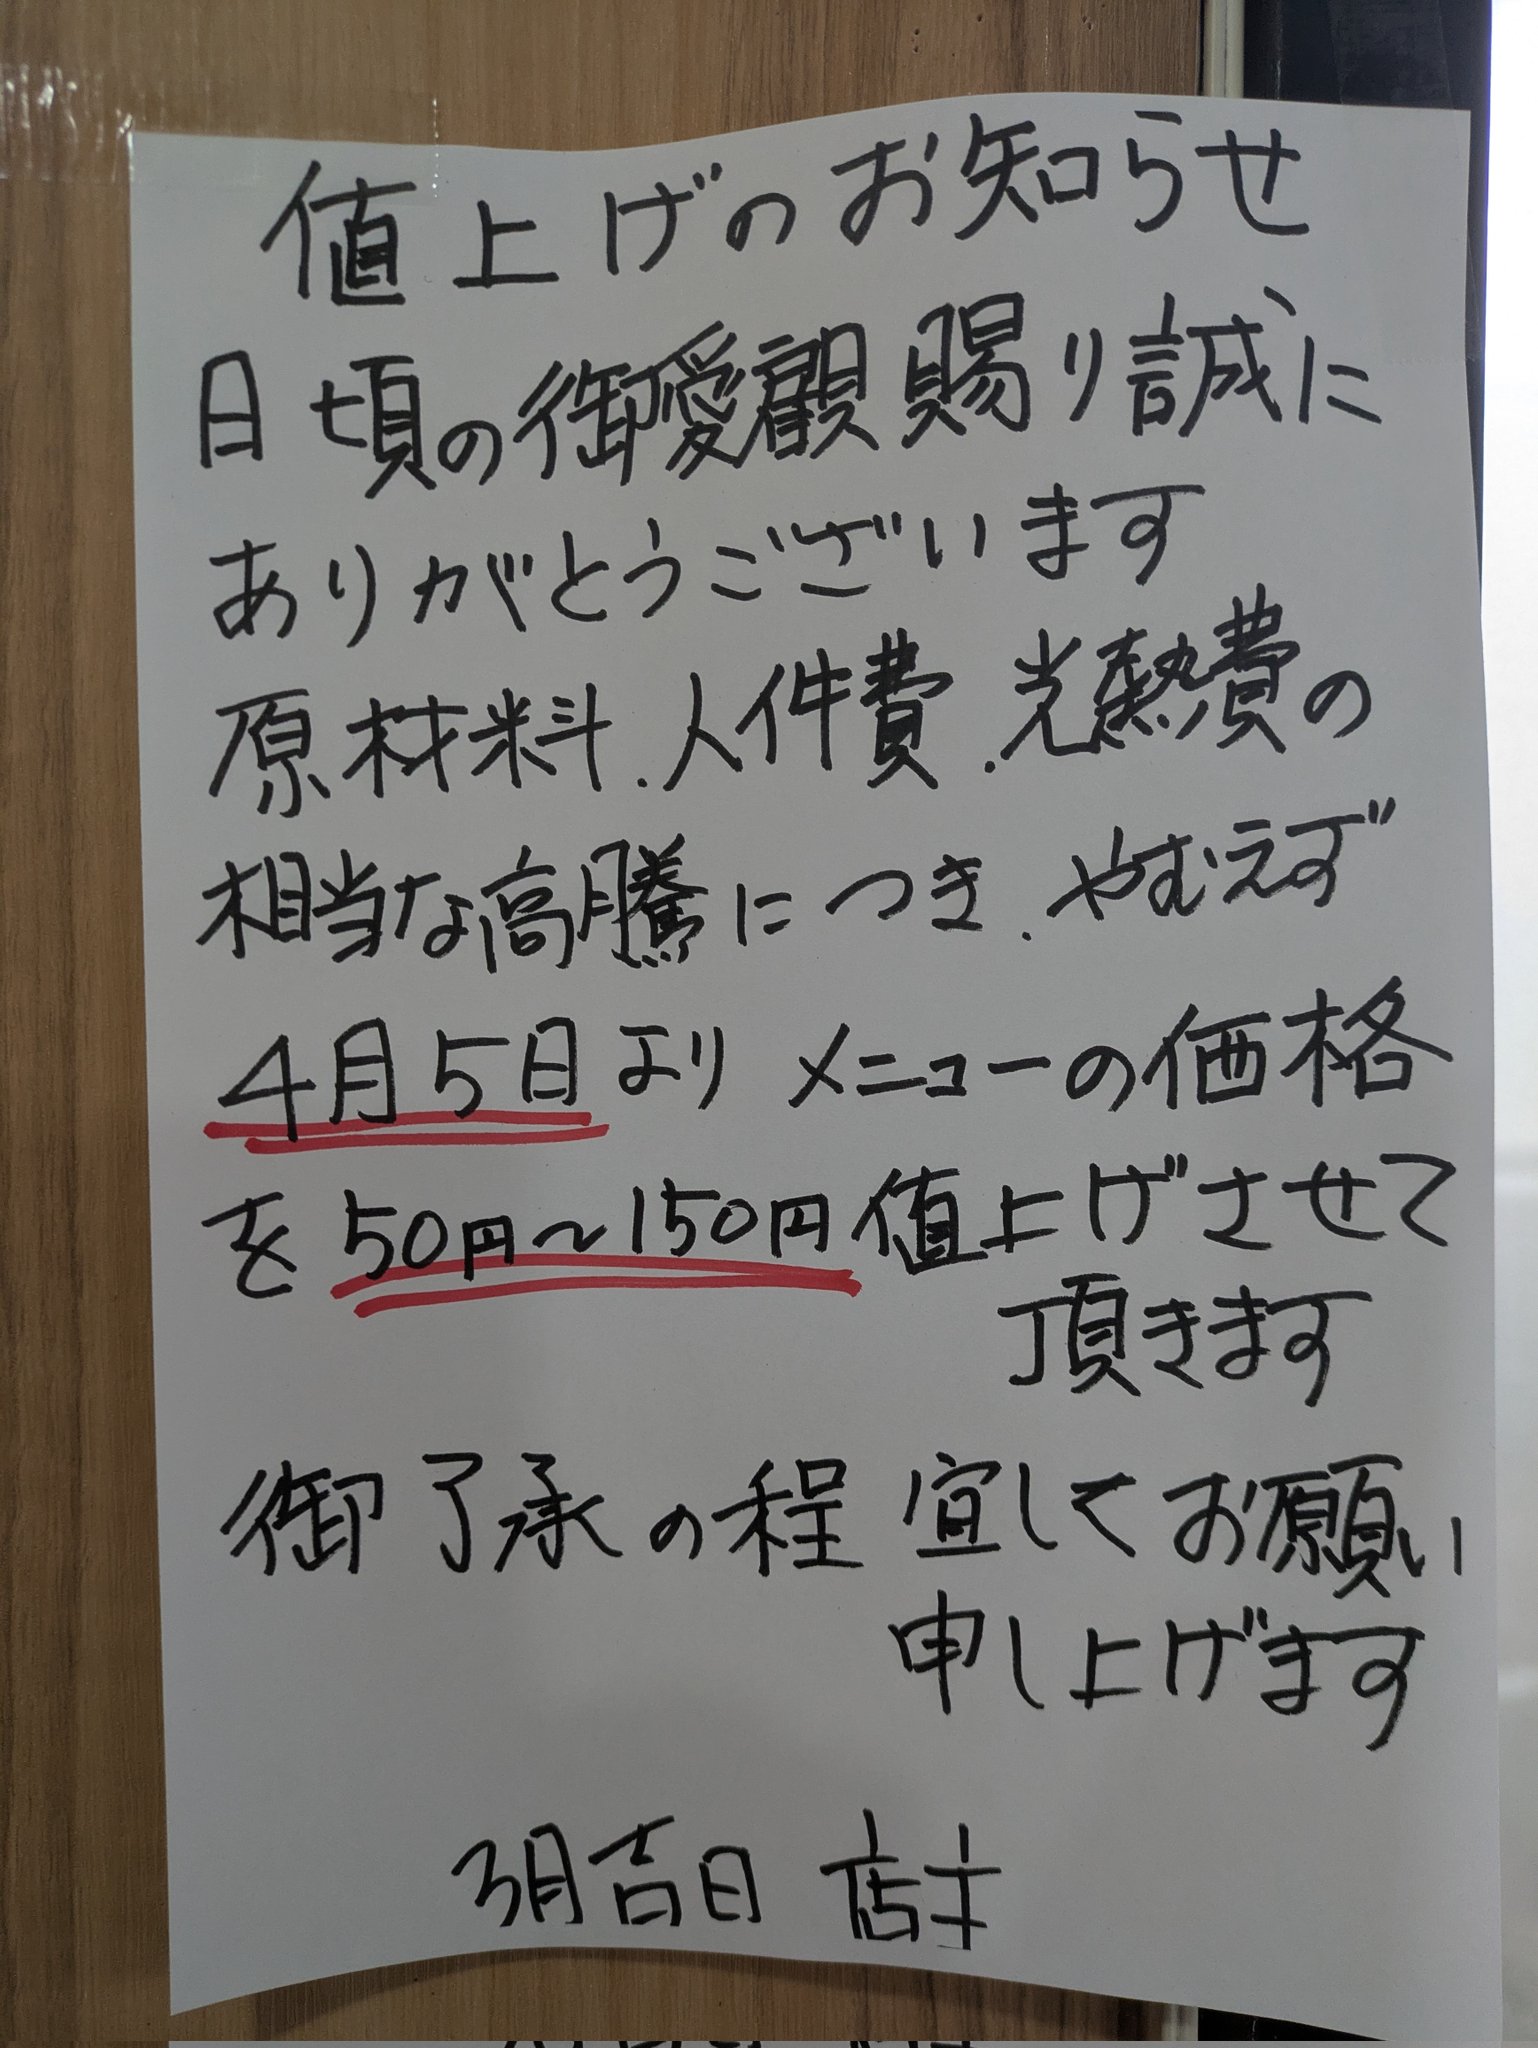 値上げのお知らせ
日頃の御愛顧賜り誠に
ありがとうございます
原材料.人件費.光熱費の
相当な高騰につき.やむえず
4月5日よりメニューの価格
を50円〜150円値上げさせて
頂きます
御了承の程宜しくお願い
申し上げます
3月吉日 店主